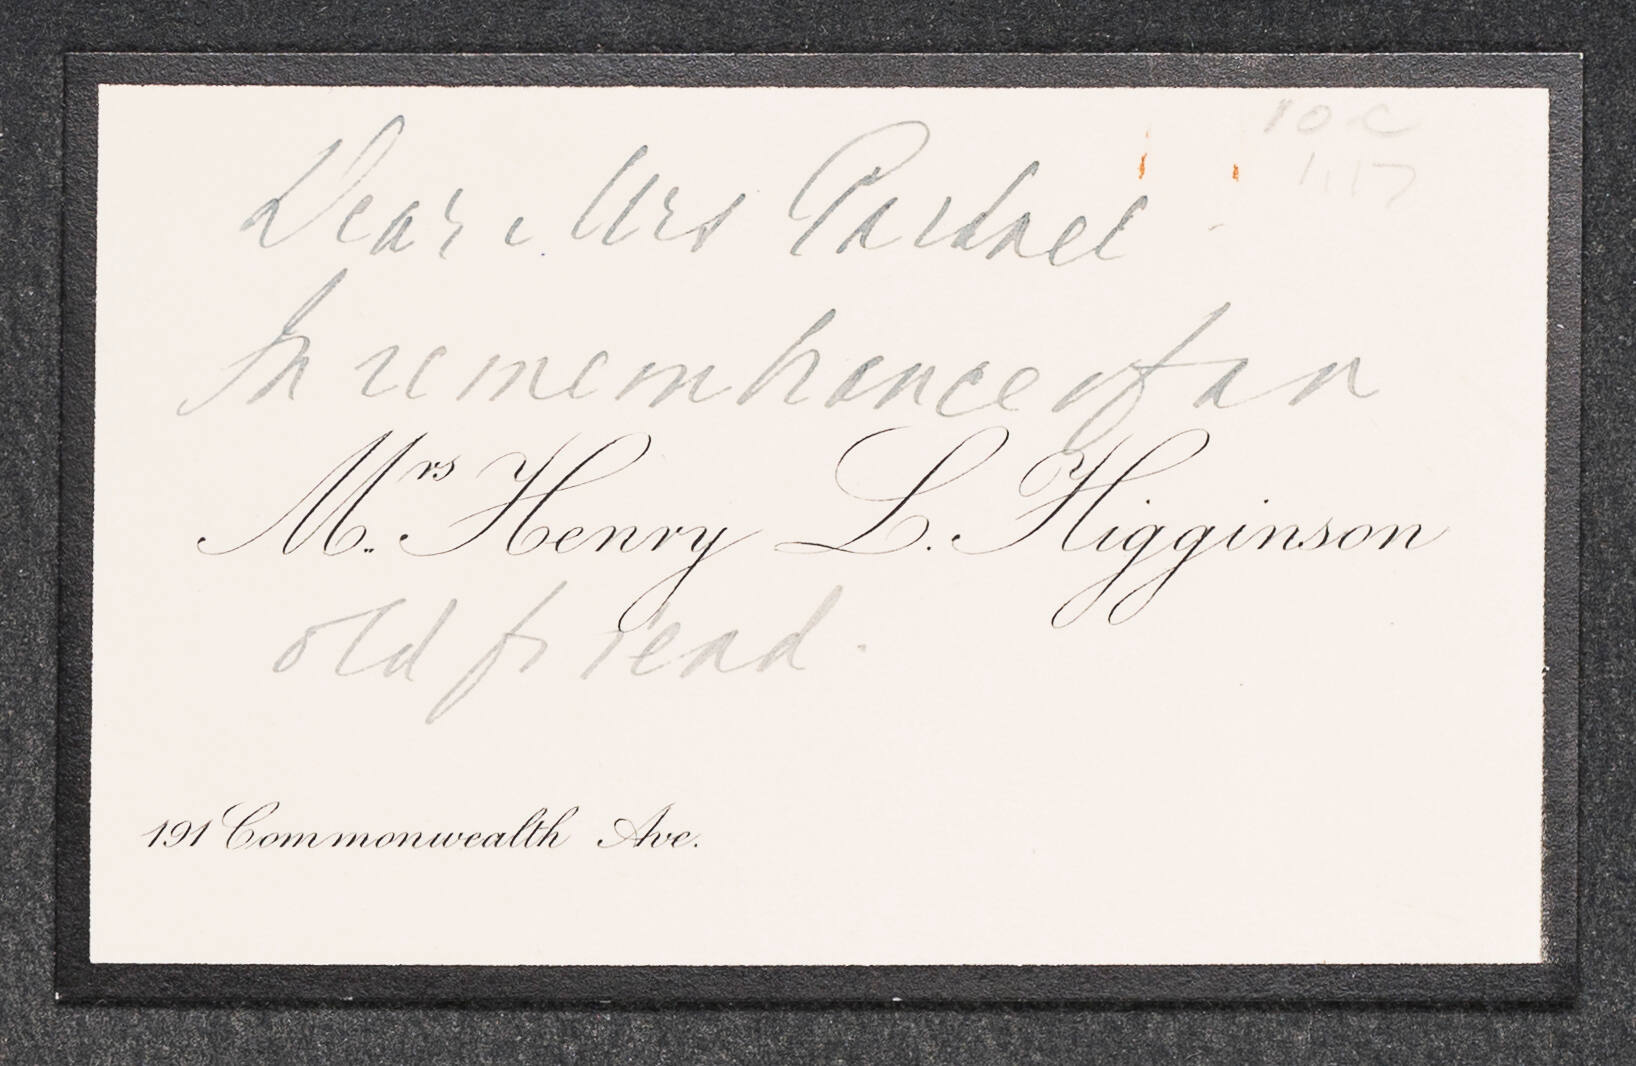 10 c
1.17
Dear Mrs
In remembrance of an
Mrs. Henry L. Higginson
old friend.
191 Commonwealth Ave.